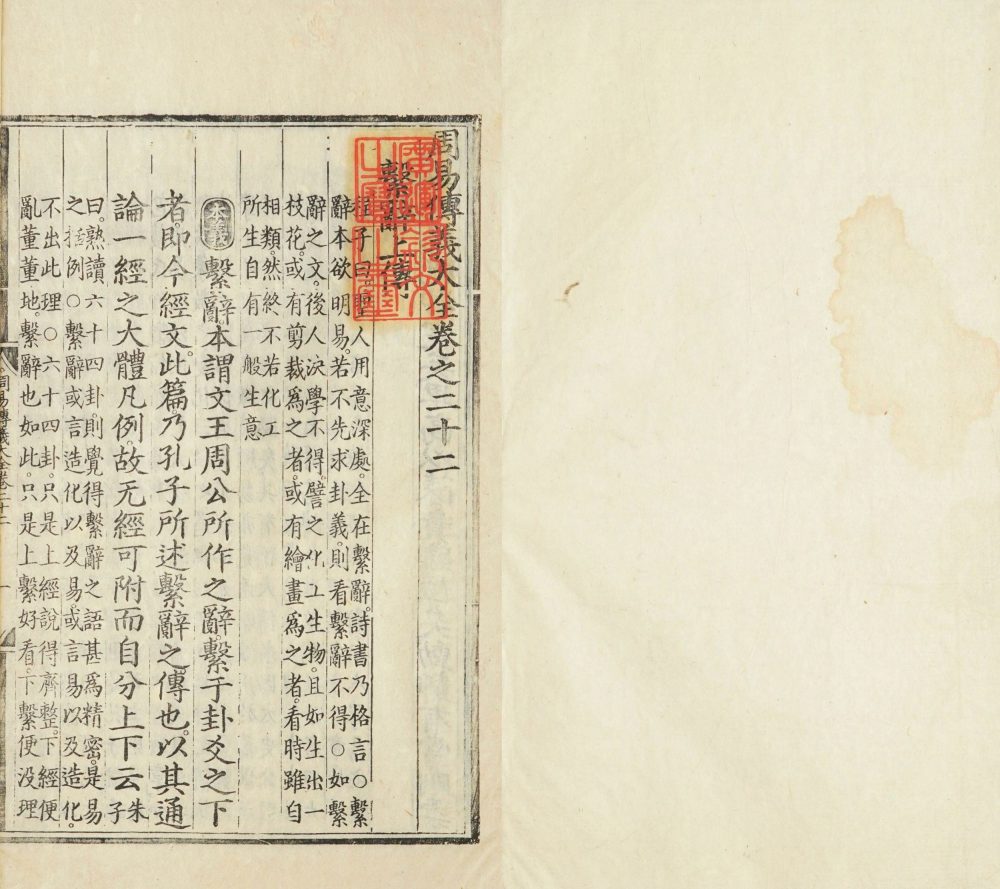 周易傳義大全卷之二十二
繫辭上傳
程子曰聖人用意深處全在繫辭詩書乃格言○繫
辭本欲明易若不先求卦義則看繫辭不得○如繫
辭之文後人決學不得譬之化工生物且如生出一
枝花或有剪裁爲之者或有繪畫爲之者看時雖自
相類然終不若化工
所生自有一般生意
本義繫辭本謂文王周公所作之辭繫于卦爻之下
者即今經文此篇乃孔子所述繫辭之傳也以其通
論一經之大體凡例故无經可附而自分上下云朱
子
曰熟讀六十四卦則覺得繫辭之語甚爲精密是易
之括例○繫辭或言造化以及易或言易以及造化
不出此理○六十四卦只是上經說得齊整下經便
亂董董地繫辭也如此只是上繫好看下繫便没理
周易傳義大全卷二十二
一